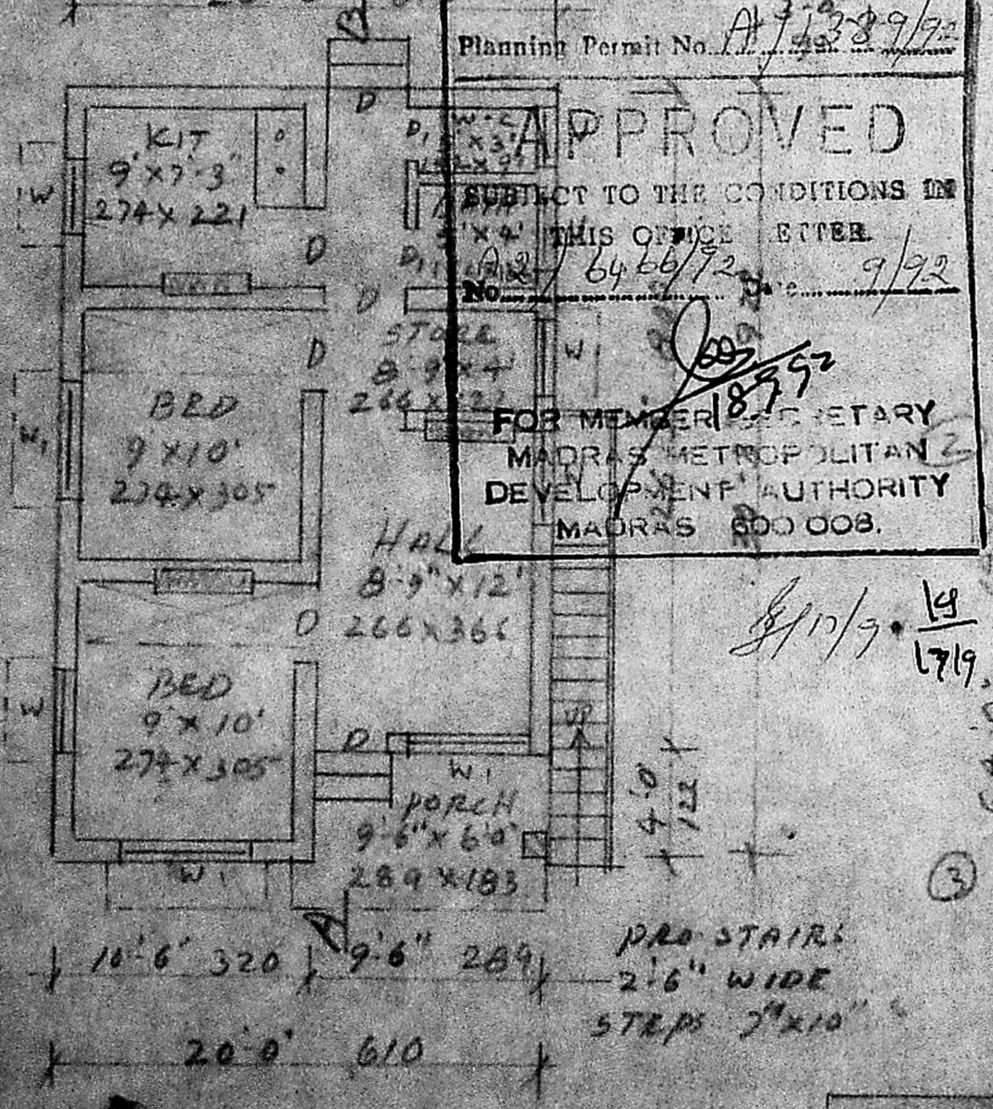 B
Planning Permit No.
APPROVED
SUBJECT TO THE CONDITIONS IN
THIS OFFICE LETTER
No 6466/92 9/92
18 9 92
FOR MEMBER SECRETARY
MADRAS METROPOLITAN
DEVELOPMENT AUTHORITY
MADRAS 600 008.
D
D1
W.C
KIT
9'X7'-3"
274X221
W
D
D1
5'X4'
D
STORE
8'-9"X4'
266X122
W1
D
BED
9'X10'
274X305
W1
HALL
8'-9"X12'
266X366
D
BED
9'X10'
274X305
W
D
W1
UP
4'-0
122
PORCH
9'-6"X6'0"
289X183
W1
A
17/9
3
10'-6" 320
9'-6" 289
20'-0" 610
PRO STAIRS
2'-6" WIDE
STEPS 7"X10"